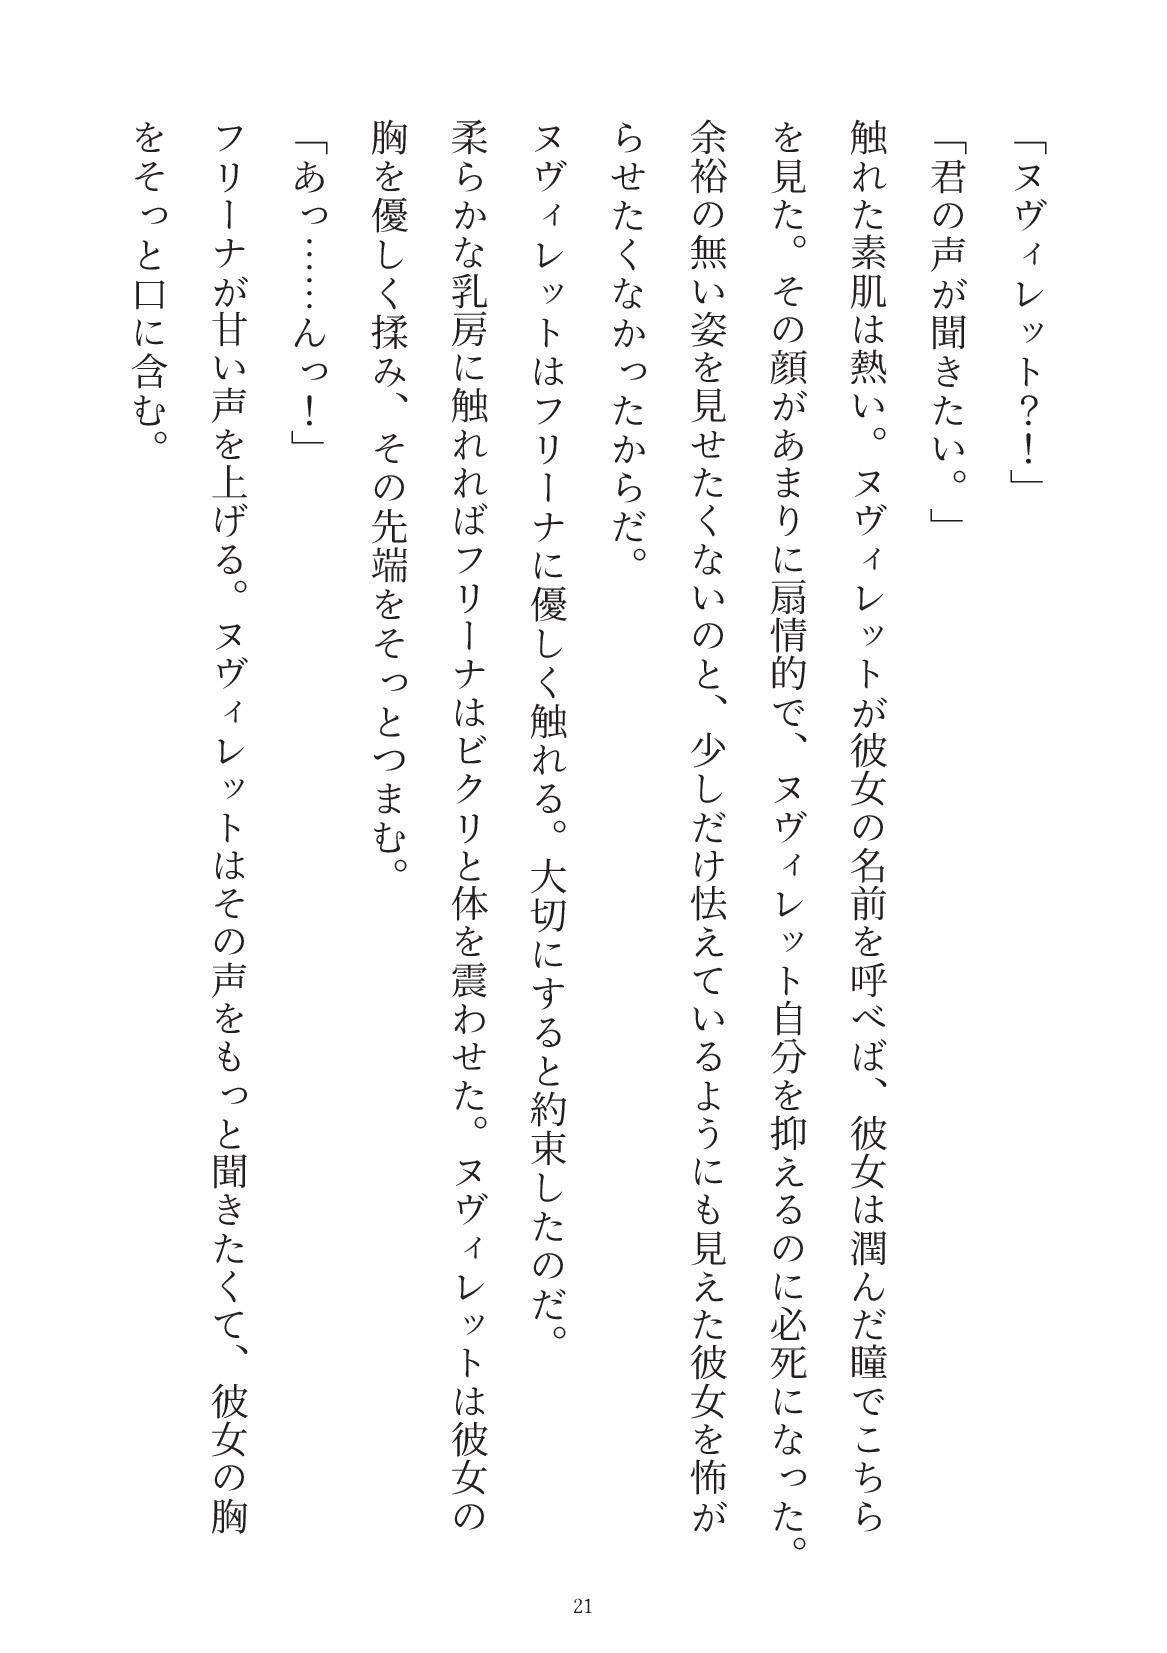 「ヌヴィレット?!」
「君の声が聞きたい。」
触れた素肌は熱い。ヌヴィレットが彼女の名前を呼べば、彼女は潤んだ瞳でこちら
を見た。その顔があまりに扇情的で、ヌヴィレット自分を抑えるのに必死になった。
余裕の無い姿を見せたくないのと、少しだけ怯えているようにも見えた彼女を怖が
らせたくなかったからだ。
ヌヴィレットはフリーナに優しく触れる。大切にすると約束したのだ。
柔らかな乳房に触れればフリーナはビクリと体を震わせた。ヌヴィレットは彼女の
胸を優しく揉み、その先端をそっとつまむ。
「あっ……んっ!」
フリーナが甘い声を上げる。ヌヴィレットはその声をもっと聞きたくて、彼女の胸
をそっと口に含む。
21